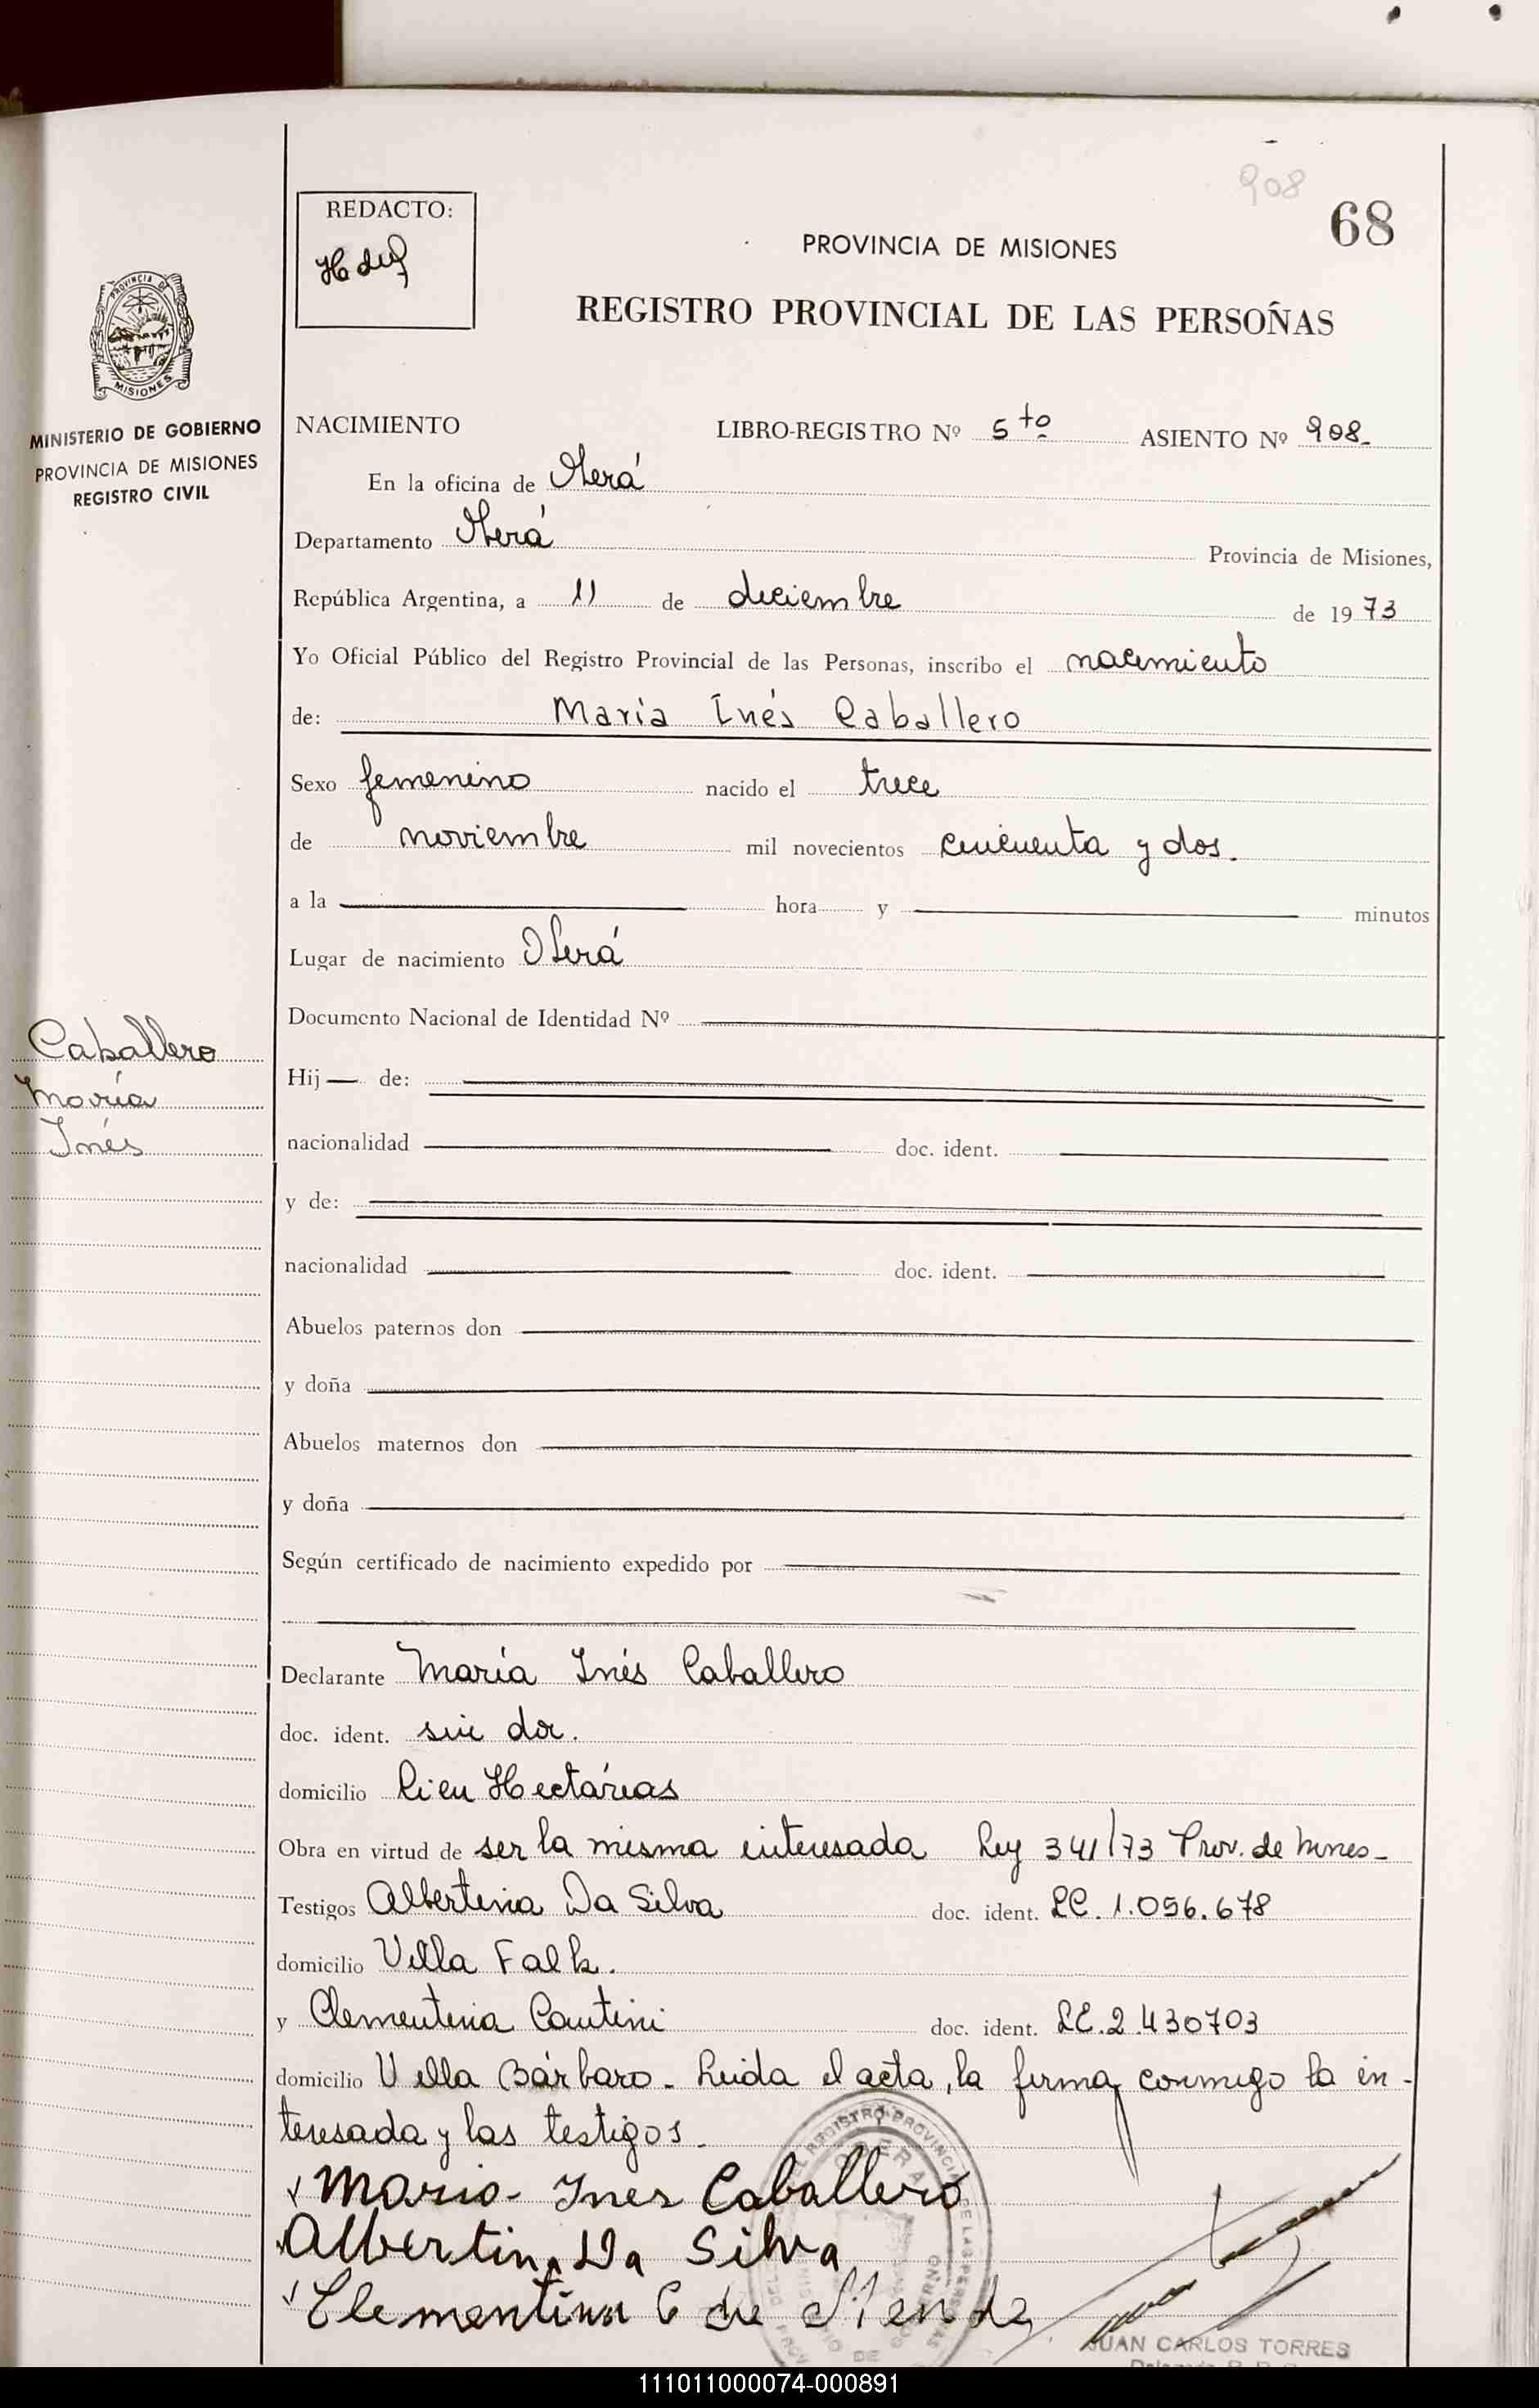 908
68
REDACTO:
PROVINCIA DE MISIONES
REGISTRO PROVINCIAL DE LAS PERSOÑAS
PROVINCIA DE
MISIONES
MINISTERIO DE GOBIERNO
PROVINCIA DE MISIONES
REGISTRO CIVIL
NACIMIENTO LIBRO-REGISTRO Nº 5to ASIENTO Nº 908-
En la oficina de Oberá
Departamento Oberá Provincia de Misiones,
República Argentina, a 11 de diciembre de 1973
Yo Oficial Público del Registro Provincial de las Personas, inscribo el nacimiento
de: Maria Inés Caballero
Sexo femenino nacido el trece
de noviembre mil novecientos cincuenta y dos.
a la hora y minutos
Lugar de nacimiento Oberá
Documento Nacional de Identidad Nº
Caballero
María
Inés
Hij de:
nacionalidad doc. ident.
y de:
nacionalidad doc. ident.
Abuelos paternos don
y doña
Abuelos maternos don
y doña
Según certificado de nacimiento expedido por
Declarante María Inés Caballero
doc. ident. sin doc.
domicilio Cien Hectáreas
Obra en virtud de ser la misma interesada Ley 341/73 Prov. de Mnes-
Testigos Albertina Da Silva doc. ident. LC. 1.056.678
domicilio Villa Falk.
y Clementina Cantini doc. ident. LC. 2.430703
domicilio Villa Bárbaro - Leida el acta, la firma conmigo la in-
teresada y las testigos.
Maria Ines Caballero
Albertina Da Silva
Clementina C de
JUAN CARLOS TORRES
111011000074-000891